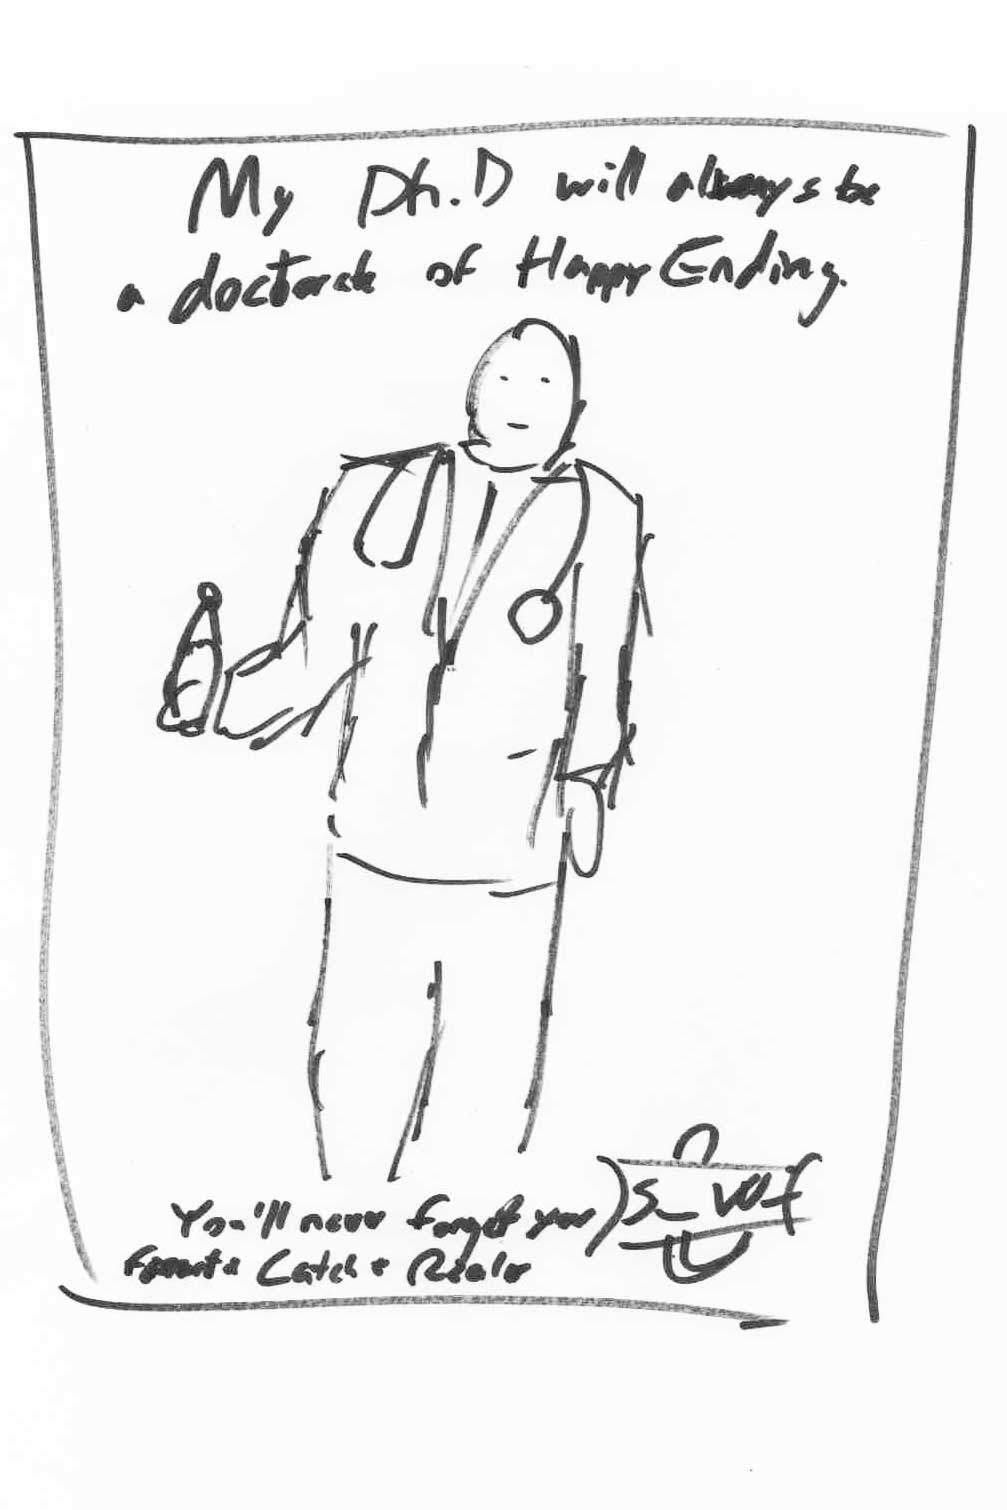 My Ph.D will always be
a doctorate of Happy Ending.
You'll never forget your
Catch &